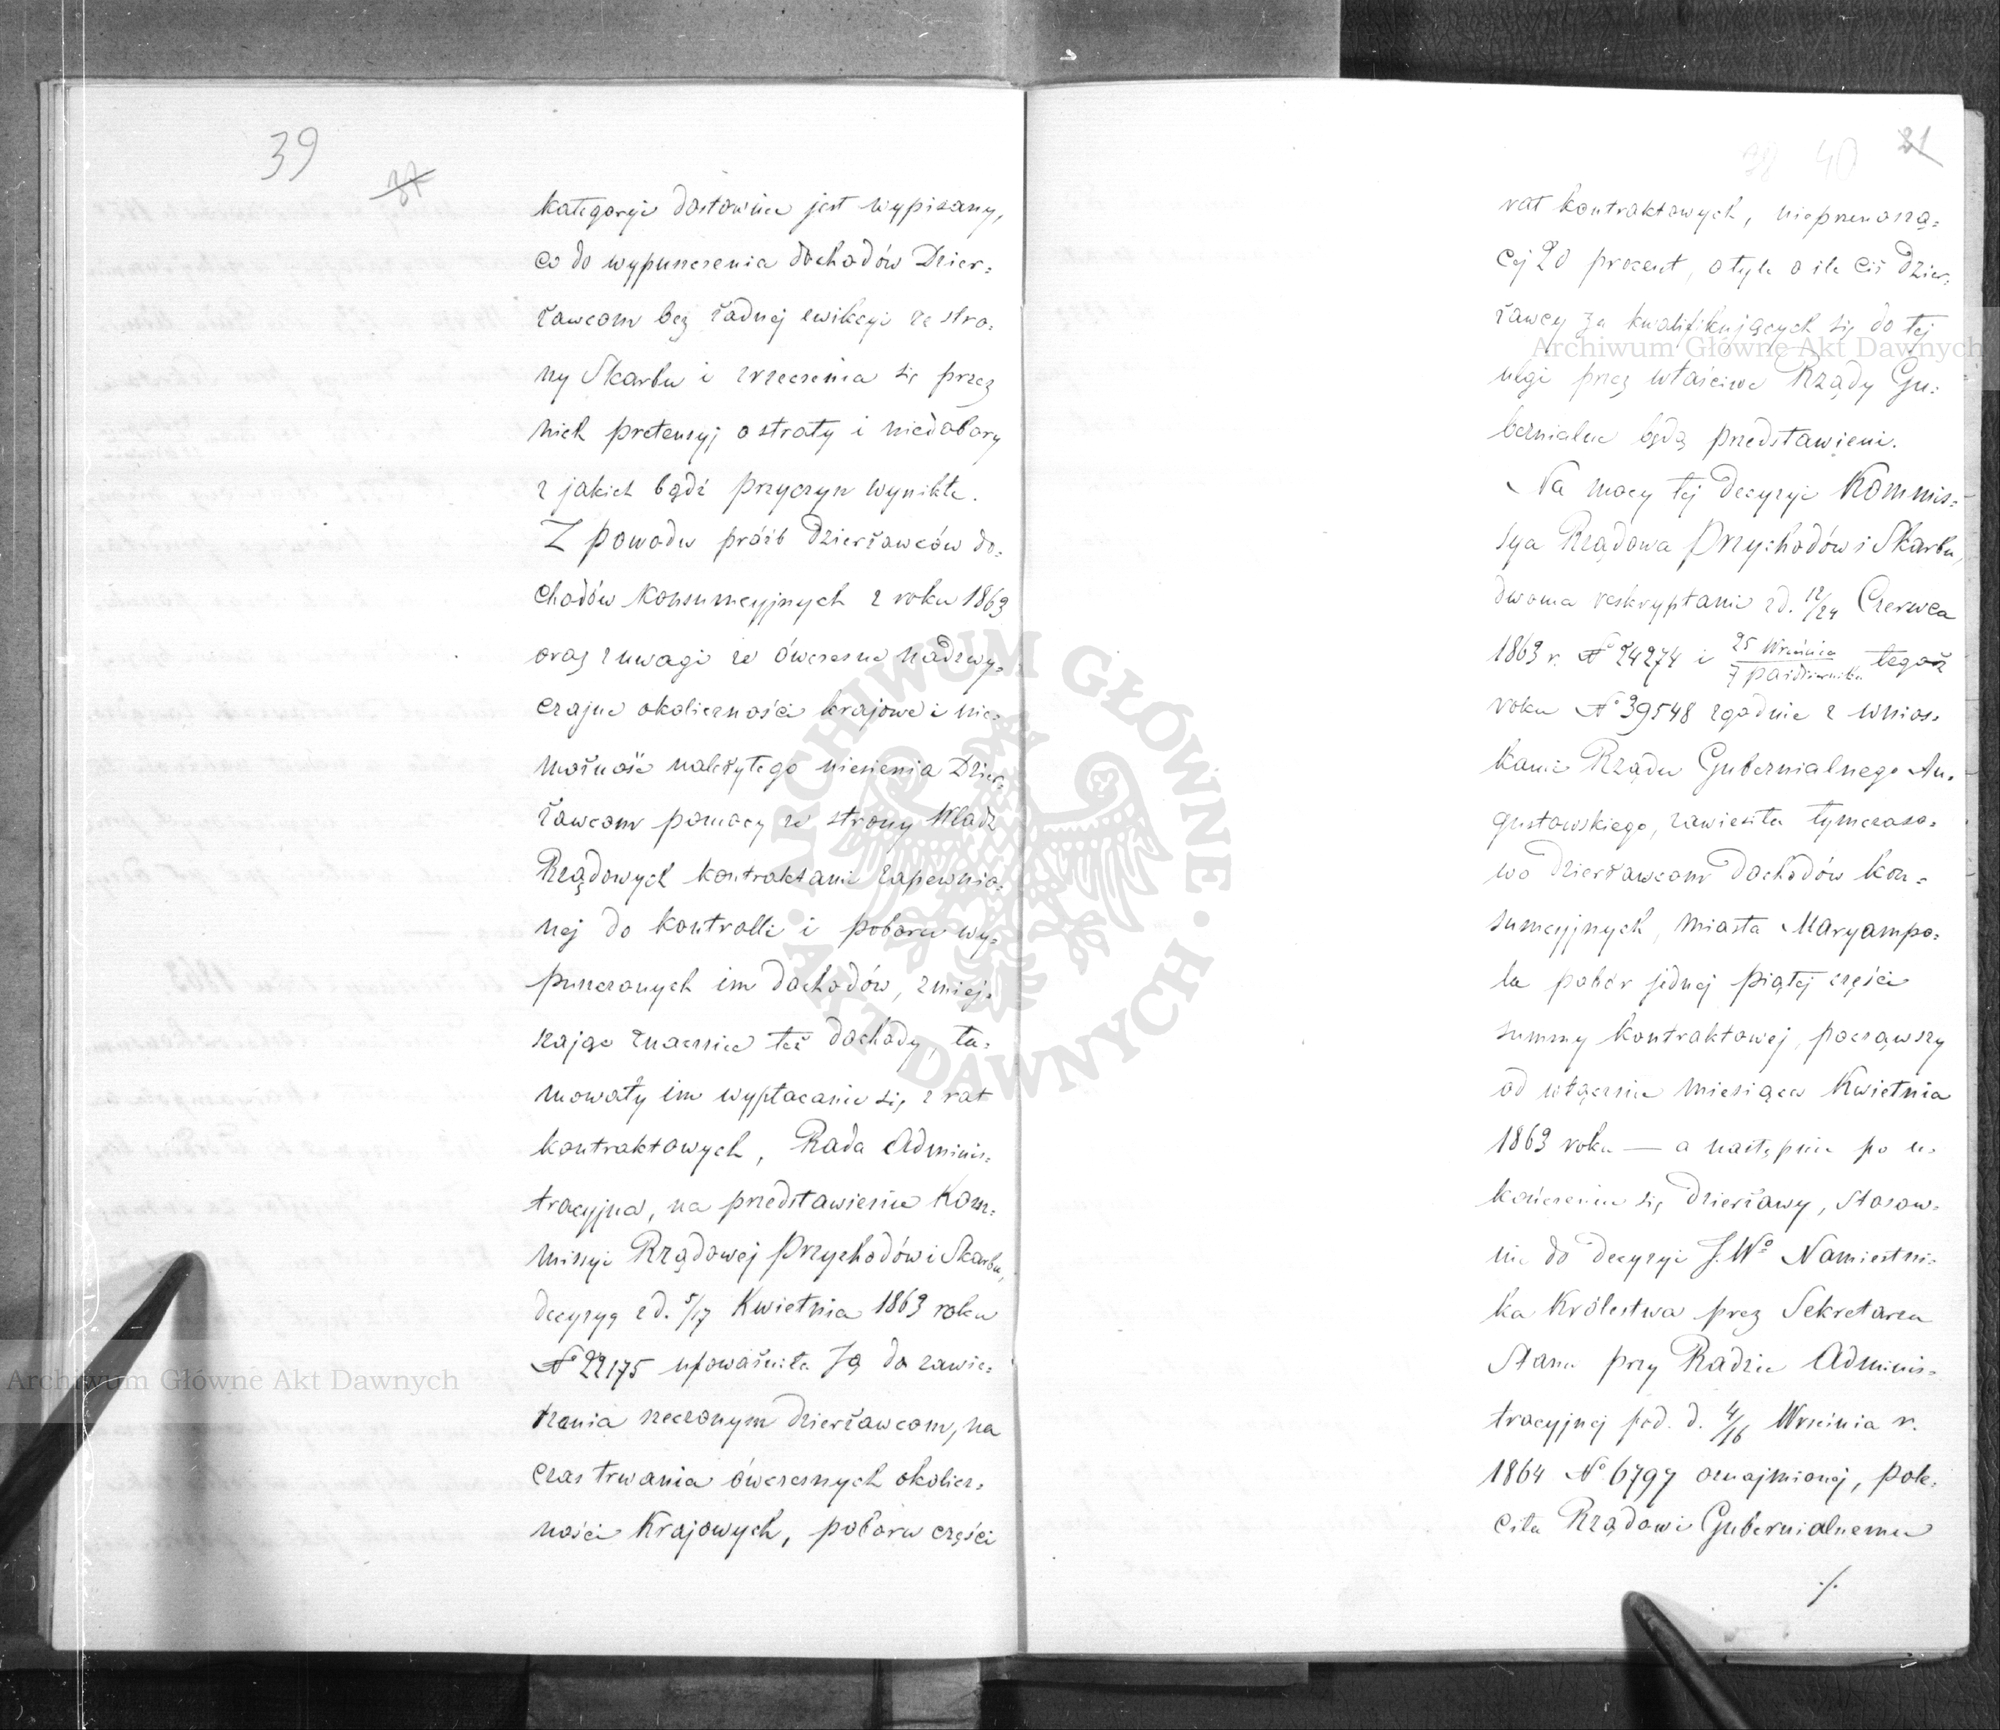 39
37
kategoryi dosłownie jest wypisany,
co do wypuszczenia dochodów Dzier=
żawcom bez żadnej ewikcyi ze stro=
ny Skarbu i zrzeczenia się przez
nich pretensyj o straty i niedobory
z jakich bądź przyczyn wynikłe.
Z powodu próśb Dzierżawców do=
chodów konsumcyjnych z roku 1863
oraz z uwagi że ówczesne nadzwy=
czajne okoliczności krajowe i nie=
możność należytego niesienia Dzier=
żawcom pomocy ze strony Władz
Rządowych kontraktami zapewnio=
nej do kontrolli i poboru wy=
puszczonych im dochodów, zmiej=
szając znacznie też dochody, ta=
mowały im wypłacanie się z rat
kontraktowych, Rada Adminis=
tracyjna, na przedstawienie Kom=
missyi Rządowej Przychodów i Skarbu,
decyzyą z d. 5/17 Kwietnia 1863 roku
Nº 22175 upoważniła Ją do zawie=
szenia rzeczonym dzierżawcom, na
czas trwania ówczesnych okolicz=
ności Krajowych, poboru części
40
31
rat kontraktowych, nieprzenoszą=
cej 20 procent, o tyle o ile ciż Dzier=
żawcy za kwalifikujących się do tej
ulgi przez właściwe Rządy Gu=
bernialne będą przedstawieni.
Na mocy tej Decyzyi Kommis=
sya Rządowa Przychodów i Skarbu,
dwoma reskryptami z d. 12/24 Czerwca
1863 r. Nº 24274 i 25 Września / 7 Października tegoż
roku Nº 39548 zgodnie z wnios=
kami Rządu Gubernialnego Au=
gustowskiego, zawiesiła tymczaso=
wo Dzierżawcom Dochodów kon=
sumcyjnych, miasta Maryampo=
la pobór jednej piątej części
summy kontraktowej, począwszy
od włącznie miesiąca Kwietnia
1863 roku — a następnie po u=
kończeniu się Dzierżawy, stosow=
nie do decyzyi J.Wº Namiestni=
ka Królestwa przez Sekretarza
Stanu przy Radzie Adminis=
tracyjnej pod. d. 4/16 Września r.
1864 Nº 6797 oznajmionej, pole=
ciła Rządowi Gubernialnemu
./.
Archiwum Główne Akt Dawnych
Archiwum Główne Akt Dawnych
ARCHIWUM GŁÓWNE · AKT DAWNYCH ·